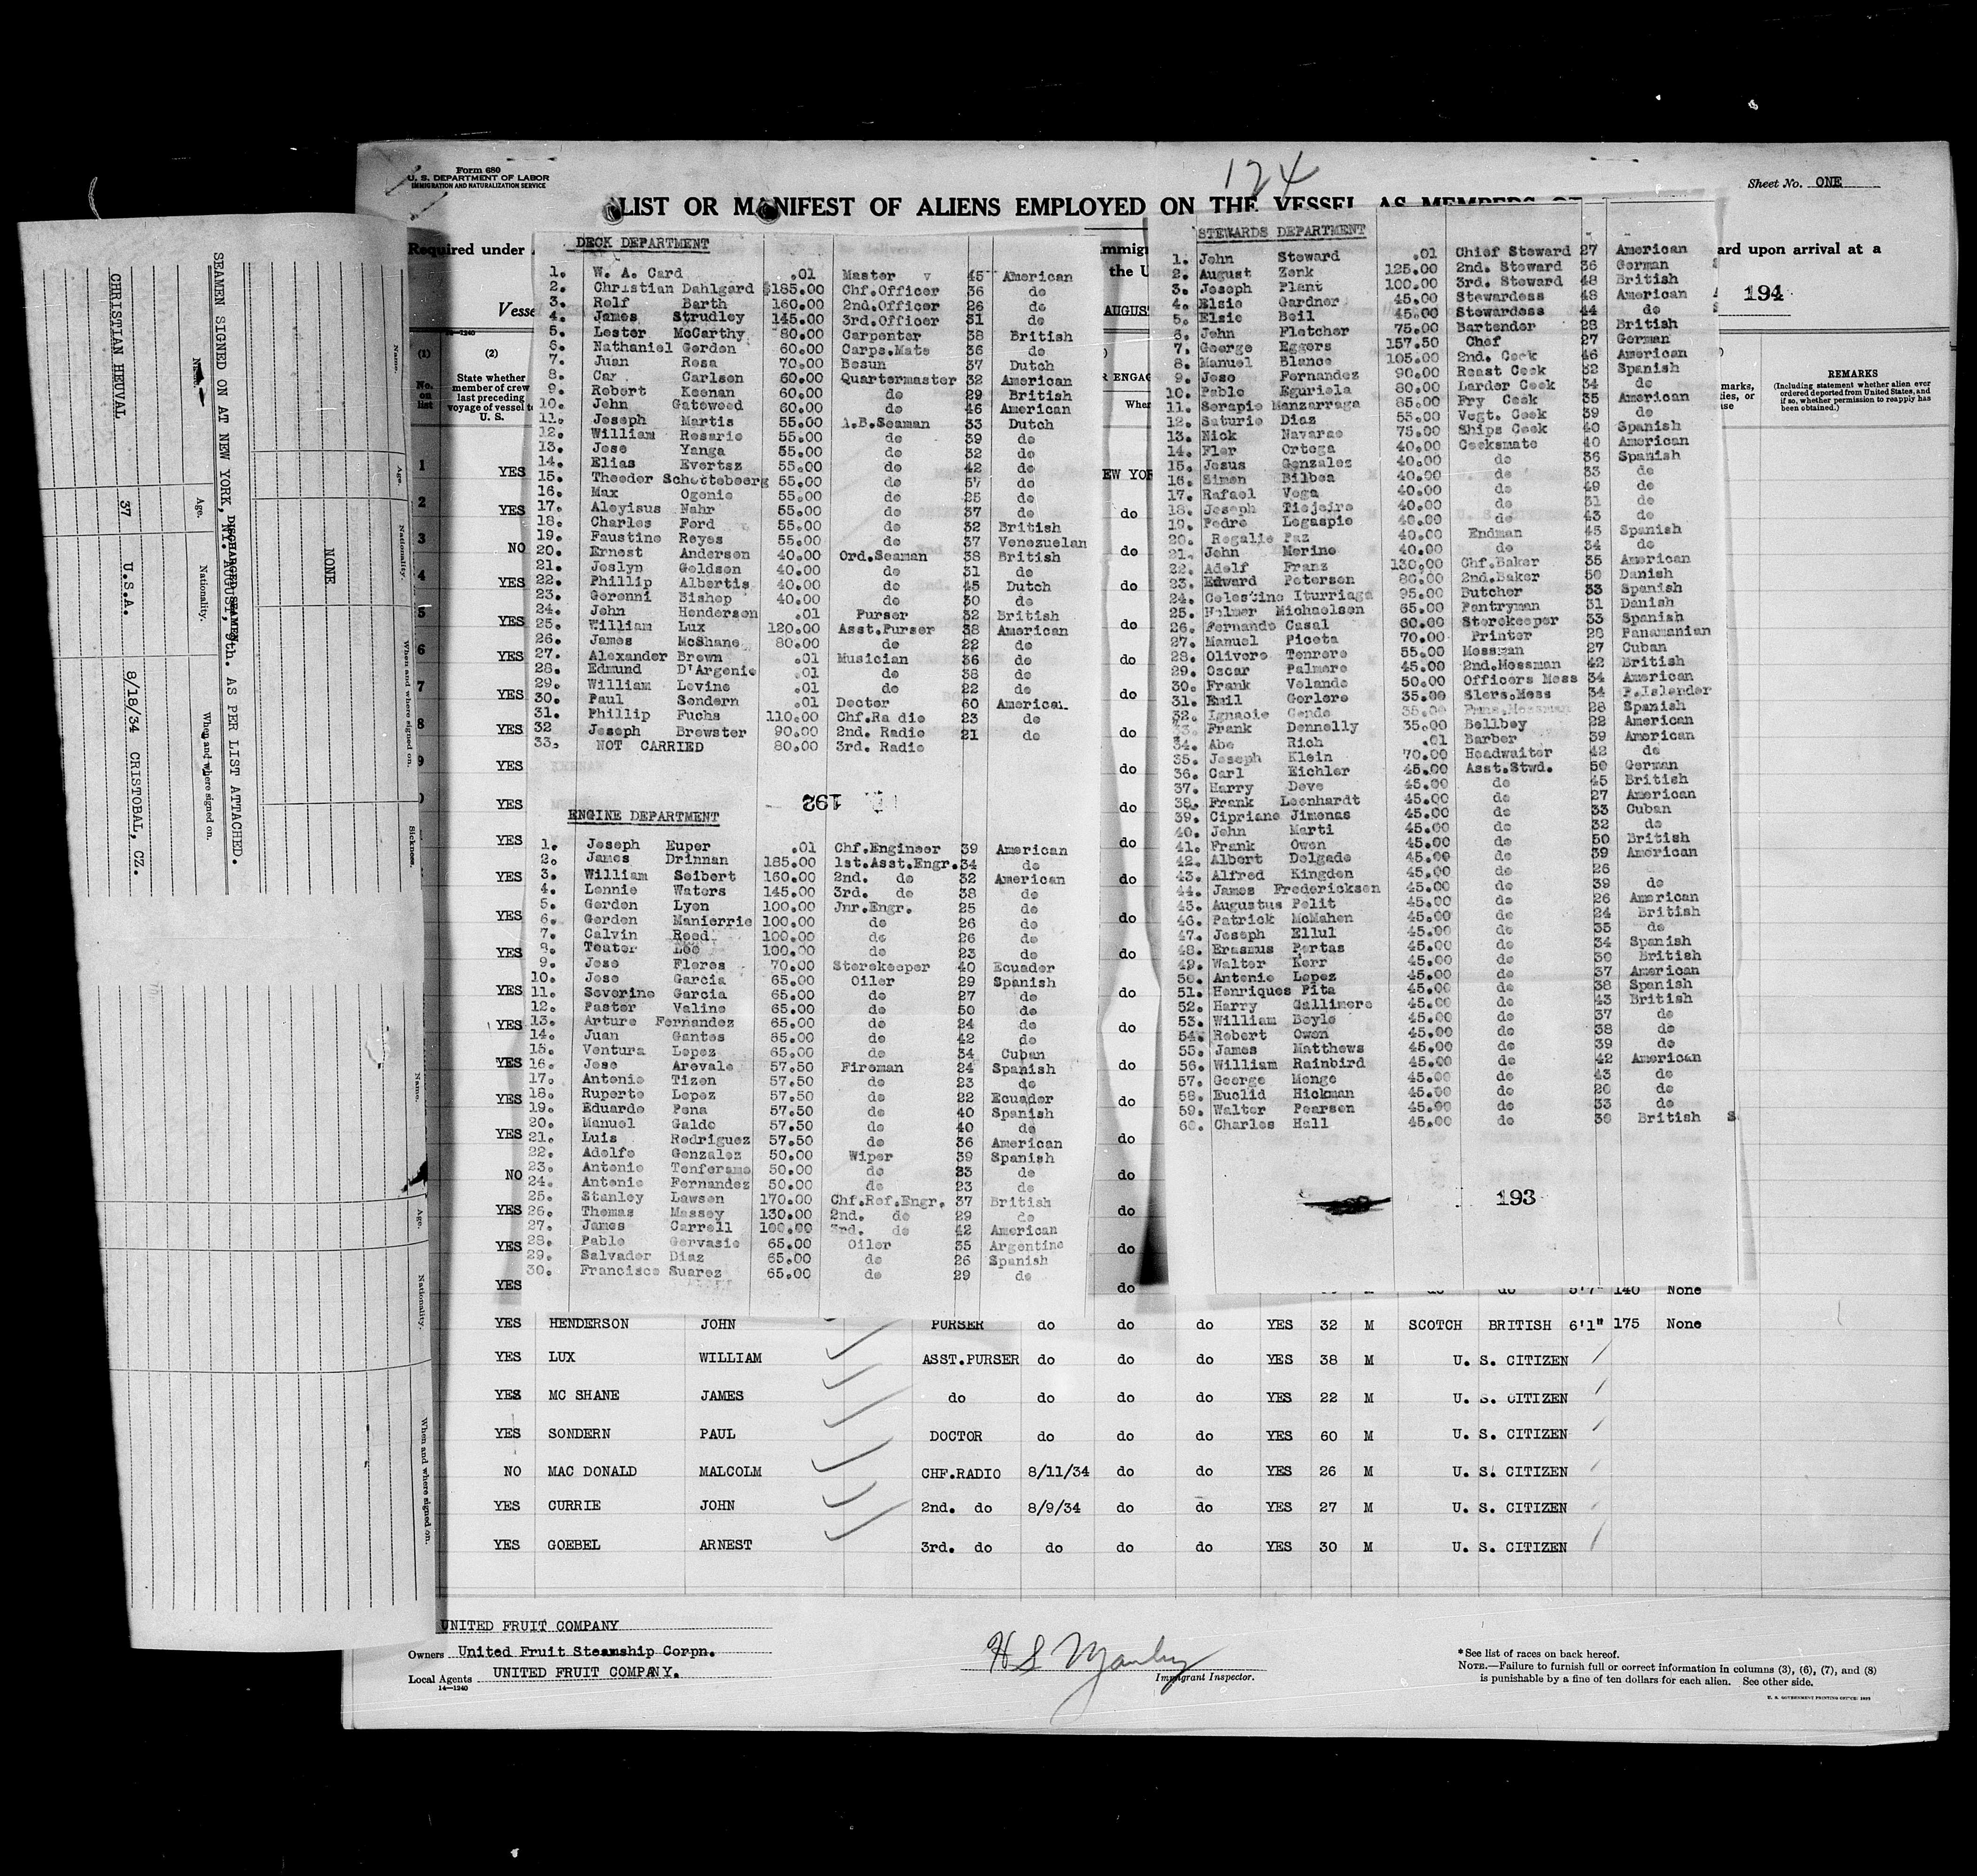 Form 680
U. S. DEPARTMENT OF LABOR
IMMIGRATION AND NATURALIZATION SERVICE
124
Sheet No. ONE
LIST OR MANIFEST OF ALIENS EMPLOYED ON THE VESSEL AS MEMBERS OF
Required under
ard upon arrival at a
mmig
the U
194
Vesse
AUGUS
14-1240
(1)
(2)
No. on list
State whether
member of crew
last preceding
voyage of vessel to
U. S.
R ENGAG
Whe
marks,
ies, or
se
REMARKS
(Including statement whether alien ever
ordered deported from United States, and
if so, whether permission to reapply has
been obtained.)
EW YOR
DECK DEPARTMENT
1. W. A. Card .01 Master v 45 American
2. Christian Dahlgard $185.00 Chf.Officer 36 do
3. Rolf Barth 160.00 2nd.Officer 26 do
4. James Strudley 145.00 3rd.Officer 31 do
5. Lester McCarthy 80.00 Carpenter 38 British
6. Nathaniel Gordon 60.00 Carps.Mate 36 do
7. Juan Rosa 70.00 Bosun 37 Dutch
8. Car Carlson 60.00 Quartermaster 32 American
9. Robert Keenan 60.00 do 29 British
10. John Gatewood 60.00 do 46 American
11. Joseph Martis 55.00 A.B.Seaman 33 Dutch
12. William Rosario 55.00 do 39 do
13. Jose Yanga 55.00 do 32 do
14. Elias Evertsz 55.00 do 42 do
15. Theodor Schottoboorg 55.00 do 57 do
16. Max Ogenio 55.00 do 25 do
17. Aloyisus Nahr 55.00 do 37 do
18. Charles Ford 55.00 do 32 British
19. Faustino Reyes 55.00 do 37 Venezuelan
20. Ernest Anderson 40.00 Ord.Seaman 38 British
21. Joslyn Goldson 40.00 do 31 do
22. Phillip Albertis 40.00 do 45 Dutch
23. Goronni Bishop 40.00 do 30 do
24. John Henderson .01 Purser 32 British
25. William Lux 120.00 Asst.Purser 38 American
26. James McShane 80.00 do 22 do
27. Alexander Brown .01 Musician 36 do
28. Edmund D'Argenio .01 do 38 do
29. William Levine .01 do 22 do
30. Paul Sondern .01 Doctor 60 American
31. Phillip Fuchs 110.00 Chf.Ra dio 23 do
32 Joseph Brewster 90.00 2nd. Radio 21 do
33. NOT CARRIED 80.00 3rd. Radio
192
ENGINE DEPARTMENT
1. Joseph Euper .01 Chf.Engineer 39 American
2. James Drinnan 185.00 1st.Asst.Engr. 34 do
3. William Seibert 160.00 2nd. do 32 American
4. Lonnie Waters 145.00 3rd. do 38 do
5. Gordon Lyon 100.00 Jnr.Engr. 25 do
6. Gordon Manierrie 100.00 do 26 do
7. Calvin Reed 100.00 do 26 do
8. Teator Lee 100.00 do 23 do
9. Jose Flores 70.00 Storekeeper 40 Ecuador
10. Jose Garcia 65.00 Oiler 29 Spanish
11. Severino Garcia 65.00 do 27 do
12. Pastor Valino 65.00 do 50 do
13. Arturo Fernandez 65.00 do 24 do
14. Juan Gantes 65.00 do 42 do
15. Ventura Lopez 65.00 do 34 Cuban
16. Jose Arevalo 57.50 Fireman 24 Spanish
17. Antonio Tizon 57.50 do 23 do
18. Ruperto Lopez 57.50 do 22 Ecuador
19. Eduardo Pena 57.50 do 40 Spanish
20. Manuel Galdo 57.50 do 40 do
21. Luis Rodriguez 57.50 do 36 American
22. Adolfo Gonzalez 50.00 Wiper 39 Spanish
23. Antonio Tenferamo 50.00 do 33 do
24. Antonio Fernandez 50.00 do 23 do
25. Stanley Lawson 170.00 Chf.Ref.Engr. 37 British
26. Thomas Massey 130.00 2nd. do 29 do
27. James Carroll 100.00 3rd. do 42 American
28. Pablo Gervasio 65.00 Oiler 35 Argentine
29. Salvador Diaz 65.00 do 26 Spanish
30. Francisco Suarez 65.00 do 29 do
STEWARDS DEPARTMENT
1. John Steward .01 Chief Steward 27 American
2. August Zenk 125.00 2nd. Steward 36 German
3. Joseph Plant 100.00 3rd. Steward 48 British
4. Elsie Gardner 45.00 Stewardess 48 American
5. Elsie Beil 45.00 Stewardess 44 do
6. John Fletcher 75.00 Bartender 28 British
7. George Eggers 157.50 Chef 27 German
8. Manuel Blanco 105.00 2nd. Cook 46 American
9. Jose Fernandez 90.00 Roast Cook 32 Spanish
10. Pablo Eguriola 80.00 Larder Cook 34 do
11. Serapio Manzarraga 65.00 Fry Cook 35 American
12. Saturio Diaz 55.00 Vegt. Cook 39 do
13. Nick Navarao 75.00 Ships Cook 40 Spanish
14. Flor Ortega 40.00 Cooksmate 40 American
15. Jesus Gonzales 40.00 do 36 Spanish
16. Simon Bilboa 40.00 do 33 do
17. Rafael Vega 40.00 do 49 do
18. Joseph Tiejeiro 40.00 do 31 do
19. Pedro Legaspio 40.00 do 43 do
20. Rogalio Paz 40.00 Endman 45 Spanish
21. John Merino 40.00 do 34 do
22. Adolf Franz 130.00 Chf.Baker 35 American
23. Edward Peterson 80.00 2nd.Baker 50 Danish
24. Celestino Iturriaga 95.00 Butcher 33 Spanish
25. Holmer Michaelsen 65.00 Pantryman 31 Danish
26. Fernando Casal 60.00 Storekeeper 33 Spanish
27. Manuel Picota 70.00 Printer 28 Panamanian
28. Olivero Tenrero 55.00 Messman 27 Cuban
29. Oscar Palmero 45.00 2nd.Messman 42 British
30. Frank Velando 50.00 Officers Mess 34 American
31. Emil Gorlero 35.00 Slers.Mess 34 P.Islander
32. Ignacio Conde 35.00 28 Spanish
33. Frank Donnelly 35.00 Bellboy 22 American
34. Abe Rich .01 Barber 39 American
35. Joseph Klein 70.00 Headwaiter 42 do
36. Carl Eichler 45.00 Asst.Stwd. 50 German
37. Harry Dove 45.00 do 45 British
38. Frank Leonhardt 45.00 do 27 American
39. Cipriano Jimenas 45.00 do 33 Cuban
40. John Marti 45.00 do 32 do
41. Frank Owen 45.00 do 50 British
42. Albert Delgado 45.00 do 39 American
43. Alfred Kingdon 45.00 do 26
44. James Fredericksen 45.00 do 39 do
45. Augustus Polit 45.00 do 26 American
46. Patrick McMahon 45.00 do 24 British
47. Joseph Ellul 45.00 do 35 do
48. Erasmus Portas 45.00 do 34 Spanish
49. Walter Kerr 45.00 do 30 British
50. Antonio Lopez 45.00 do 37 American
51. Henriques Pita 45.00 do 38 Spanish
52. Harry Gallimore 45.00 do 43 British
53. William Boyle 45.00 do 37 do
54. Robert Owen 45.00 do 38 do
55. James Matthews 45.00 do 39 do
56. William Rainbird 45.00 do 42 American
57. George Monge 45.00 do 43 do
58. Euclid Hickman 45.00 do 20 do
59. Walter Pearson 45.00 do 33 do
60. Charles Hall 45.00 do 38 British S
193
do do 5'7" 140 None
YES HENDERSON JOHN PURSER do do do YES 32 M SCOTCH BRITISH 6'1" 175 None
YES LUX WILLIAM ASST.PURSER do do do YES 38 M U. S. CITIZEN
YES MC SHANE JAMES do do do do YES 22 M U. S. CITIZEN
YES SONDERN PAUL DOCTOR do do do YES 60 M U. S. CITIZEN
NO MAC DONALD MALCOLM CHF.RADIO 8/11/34 do do YES 26 M U. S. CITIZEN
YES CURRIE JOHN 2nd. do 8/9/34 do do YES 27 M U. S. CITIZEN
YES GOEBEL ARNEST 3rd. do do do do YES 30 M U. S. CITIZEN
UNITED FRUIT COMPANY
Owners United Fruit Steamship Corpn.
Local Agents UNITED FRUIT COMPANY.
14-1240
Immigrant Inspector.
*See list of races on back hereof.
NOTE.—Failure to furnish full or correct information in columns (3), (6), (7), and (8)
is punishable by a fine of ten dollars for each alien. See other side.
U. S. GOVERNMENT PRINTING OFFICE: 1933
SEAMEN SIGNED ON AT NEW YORK, NY. AUGUST, 9th. AS PER LIST ATTACHED.
DISCHARGED SEAMEN
Name. Age. Nationality. When and where signed on. Sickness.
NONE
Name. Age. Nationality. When and where signed on.
CHRISTIAN HEUVAL 37 U.S.A. 8/18/34 CRISTOBAL, CZ.
Name. Age. Nationality. When and where signed on.